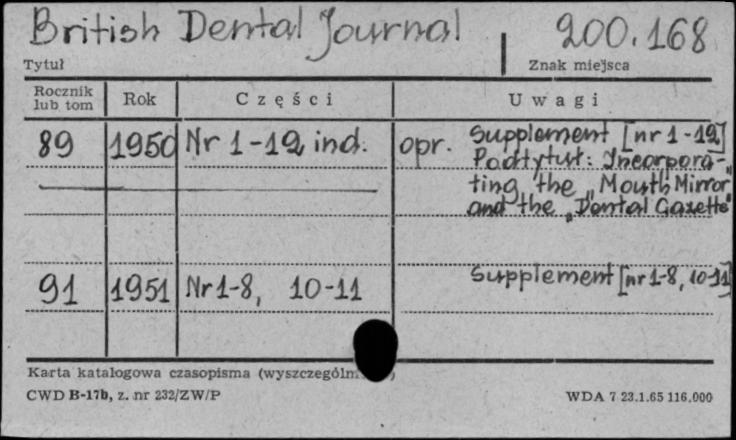 British Dental Journal
200.168
Tytuł
Znak miejsca
Rocznik lub tom
Rok
Części
Uwagi
89 1950 Nr 1-12 ind. opr. Supplement [nr 1-12]
Podtytuł: Incorpora-
ting the „Mouth Mirror"
and the „Dental Gazette"
91 1951 Nr 1-8, 10-11 Supplement [nr 1-8, 10-11]
Karta katalogowa czasopisma
CWD B-17b, z. nr 232/ZW/P
WDA 7 23.1.65 116.000